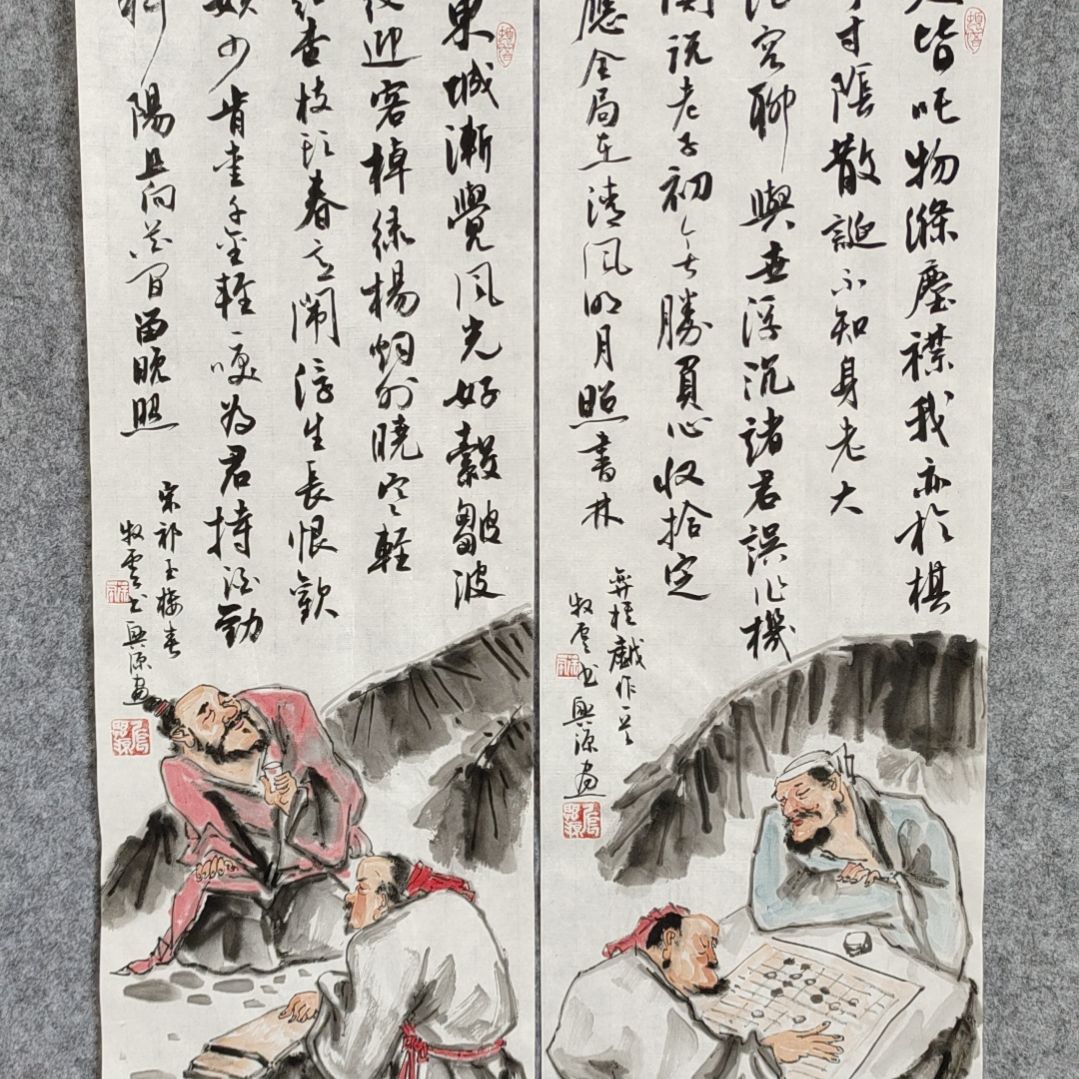 皆托物滌塵襟我亦於棋
寸陰散誕不知身老大
容聊與世浮沉諸君誤作機
關說老子初無勝負心收拾定
應全局在清風明月照書林
弈棋戲作一首
牧雲書興源畫
東城漸覺風光好縠皺波
紋迎客棹綠楊烟外曉寒輕
紅杏枝頭春意鬧浮生長恨歡
娛少肯愛千金輕一笑為君持酒勸
斜陽且向花間留晚照
宋祁玉樓春
牧雲書興源畫